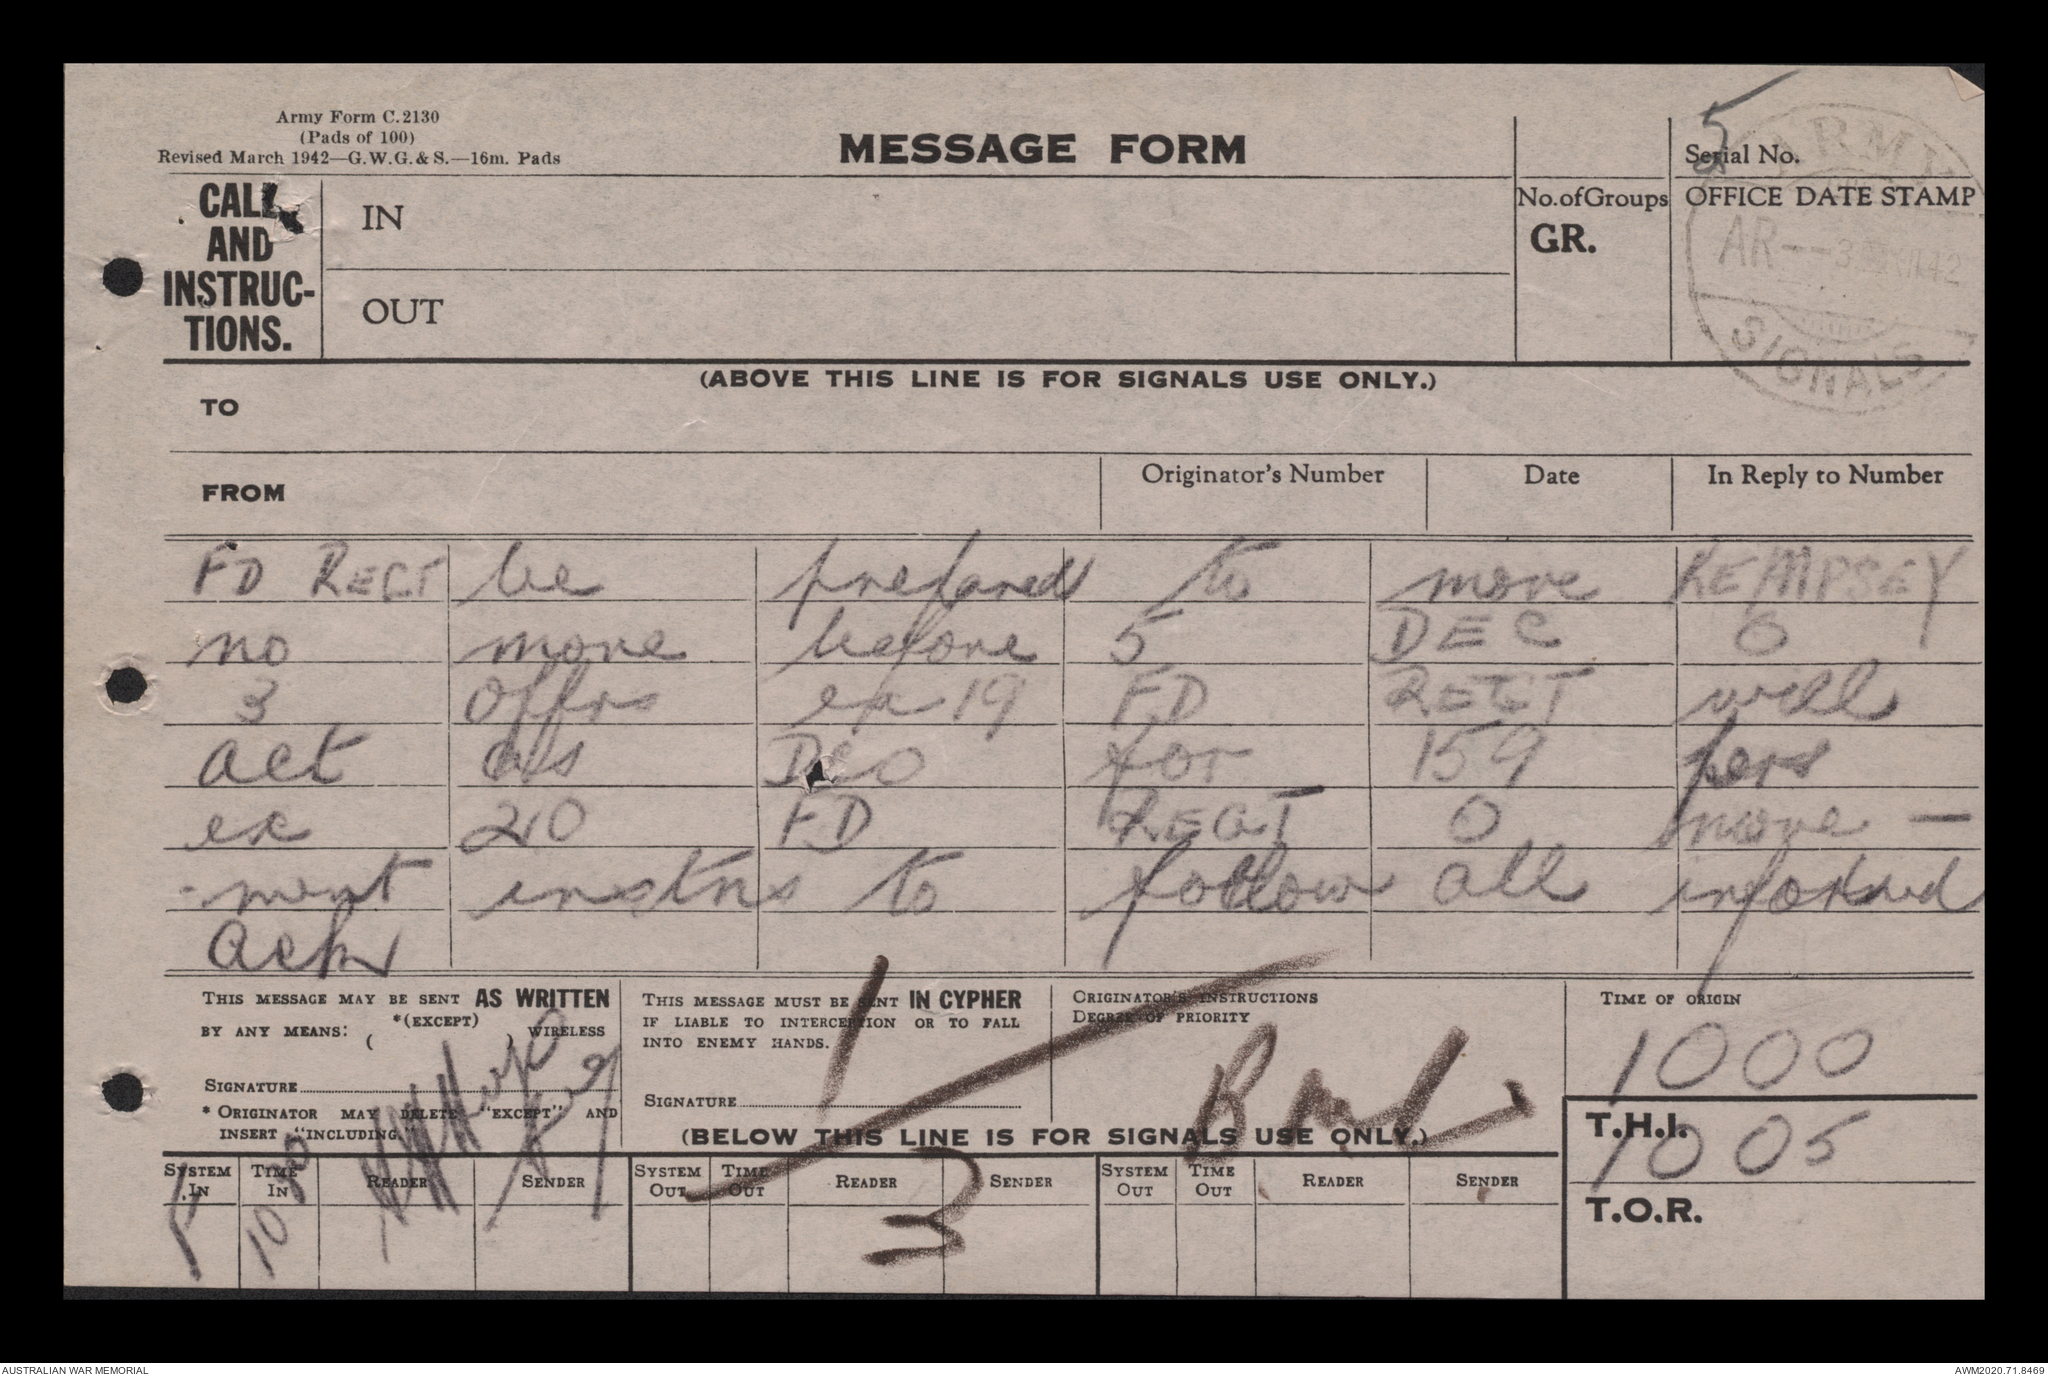 Army Form C.2130
(Pads of 100)
Revised March 1942—G.W.G.& S.—16m. Pads
MESSAGE FORM
5
Serial No.
CALL AND INSTRUC-TIONS.
IN
OUT
No. of Groups
GR.
OFFICE DATE STAMP
ARMY
AR--3.XII.42
SIGNALS
(ABOVE THIS LINE IS FOR SIGNALS USE ONLY.)
TO
FROM
Originator's Number
Date
In Reply to Number
FD REGT be prepared to move KEMPSEY
no move before 5 DEC O
3 offrs ex 19 FD REGT will
act as for 159 pers
ex 2/10 FD REGT O move —
-ment instns to follow all informed
Ackn
THIS MESSAGE MAY BE SENT AS WRITTEN
BY ANY MEANS: *(EXCEPT) ( ) WIRELESS
SIGNATURE
* ORIGINATOR MAY DELETE "EXCEPT" AND
INSERT "INCLUDING."
THIS MESSAGE MUST BE SENT IN CYPHER
IF LIABLE TO INTERCEPTION OR TO FALL
INTO ENEMY HANDS.
SIGNATURE
ORIGINATOR'S INSTRUCTIONS
DEGREE OF PRIORITY
TIME OF ORIGIN
1000
T.H.I.
1005
T.O.R.
(BELOW THIS LINE IS FOR SIGNALS USE ONLY.)
SYSTEM IN TIME IN READER SENDER SYSTEM OUT TIME OUT READER SENDER SYSTEM OUT TIME OUT READER SENDER
3
AUSTRALIAN WAR MEMORIAL
AWM2020.71.8469